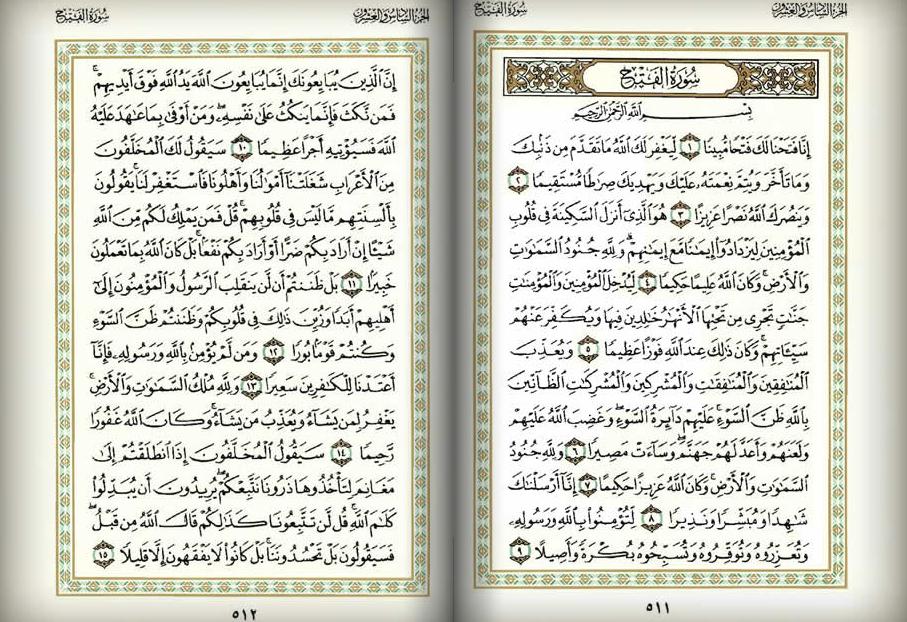 الجزء السادس والعشرون
سورة الفتح
سورة الفتح
بسم الله الرحمن الرحيم
إِنَّا فَتَحْنَا لَكَ فَتْحًا مُّبِينًا ١ لِّيَغْفِرَ لَكَ ٱللَّهُ مَا تَقَدَّمَ مِن ذَنۢبِكَ
وَمَا تَأَخَّرَ وَيُتِمَّ نِعْمَتَهُۥ عَلَيْكَ وَيَهْدِيَكَ صِرَٰطًا مُّسْتَقِيمًا ٢
وَيَنصُرَكَ ٱللَّهُ نَصْرًا عَزِيزًا ٣ هُوَ ٱلَّذِىٓ أَنزَلَ ٱلسَّكِينَةَ فِى قُلُوبِ
ٱلْمُؤْمِنِينَ لِيَزْدَادُوٓا۟ إِيمَٰنًا مَّعَ إِيمَٰنِهِمْ ۗ وَلِلَّهِ جُنُودُ ٱلسَّمَٰوَٰتِ
وَٱلْأَرْضِ ۚ وَكَانَ ٱللَّهُ عَلِيمًا حَكِيمًا ٤ لِّيُدْخِلَ ٱلْمُؤْمِنِينَ وَٱلْمُؤْمِنَٰتِ
جَنَّٰتٍ تَجْرِى مِن تَحْتِهَا ٱلْأَنْهَٰرُ خَٰلِدِينَ فِيهَا وَيُكَفِّرَ عَنْهُمْ
سَيِّـَٔاتِهِمْ ۚ وَكَانَ ذَٰلِكَ عِندَ ٱللَّهِ فَوْزًا عَظِيمًا ٥ وَيُعَذِّبَ
ٱلْمُنَٰفِقِينَ وَٱلْمُنَٰفِقَٰتِ وَٱلْمُشْرِكِينَ وَٱلْمُشْرِكَٰتِ ٱلظَّآنِّينَ
بِٱللَّهِ ظَنَّ ٱلسَّوْءِ ۚ عَلَيْهِمْ دَآئِرَةُ ٱلسَّوْءِ ۖ وَغَضِبَ ٱللَّهُ عَلَيْهِمْ
وَلَعَنَهُمْ وَأَعَدَّ لَهُمْ جَهَنَّمَ ۖ وَسَآءَتْ مَصِيرًا ٦ وَلِلَّهِ جُنُودُ
ٱلسَّمَٰوَٰتِ وَٱلْأَرْضِ ۚ وَكَانَ ٱللَّهُ عَزِيزًا حَكِيمًا ٧ إِنَّآ أَرْسَلْنَٰكَ
شَٰهِدًا وَمُبَشِّرًا وَنَذِيرًا ٨ لِّتُؤْمِنُوا۟ بِٱللَّهِ وَرَسُولِهِۦ
وَتُعَزِّرُوهُ وَتُوَقِّرُوهُ وَتُسَبِّحُوهُ بُكْرَةً وَأَصِيلًا ٩
٥١١
الجزء السادس والعشرون
سورة الفتح
إِنَّ ٱلَّذِينَ يُبَايِعُونَكَ إِنَّمَا يُبَايِعُونَ ٱللَّهَ يَدُ ٱللَّهِ فَوْقَ أَيْدِيهِمْ ۚ
فَمَن نَّكَثَ فَإِنَّمَا يَنكُثُ عَلَىٰ نَفْسِهِۦ ۖ وَمَنْ أَوْفَىٰ بِمَا عَٰهَدَ عَلَيْهُ
ٱللَّهَ فَسَيُؤْتِيهِ أَجْرًا عَظِيمًا ١٠ سَيَقُولُ لَكَ ٱلْمُخَلَّفُونَ
مِنَ ٱلْأَعْرَابِ شَغَلَتْنَآ أَمْوَٰلُنَا وَأَهْلُونَا فَٱسْتَغْفِرْ لَنَا ۚ يَقُولُونَ
بِأَلْسِنَتِهِم مَّا لَيْسَ فِى قُلُوبِهِمْ ۚ قُلْ فَمَن يَمْلِكُ لَكُم مِّنَ ٱللَّهِ
شَيْـًٔا إِنْ أَرَادَ بِكُمْ ضَرًّا أَوْ أَرَادَ بِكُمْ نَفْعًۢا ۚ بَلْ كَانَ ٱللَّهُ بِمَا تَعْمَلُونَ
خَبِيرًۢا ١١ بَلْ ظَنَنتُمْ أَن لَّن يَنقَلِبَ ٱلرَّسُولُ وَٱلْمُؤْمِنُونَ إِلَىٰٓ
أَهْلِيهِمْ أَبَدًا وَزُيِّنَ ذَٰلِكَ فِى قُلُوبِكُمْ وَظَنَنتُمْ ظَنَّ ٱلسَّوْءِ
وَكُنتُمْ قَوْمًۢا بُورًا ١٢ وَمَن لَّمْ يُؤْمِنۢ بِٱللَّهِ وَرَسُولِهِۦ فَإِنَّآ
أَعْتَدْنَا لِلْكَٰفِرِينَ سَعِيرًا ١٣ وَلِلَّهِ مُلْكُ ٱلسَّمَٰوَٰتِ وَٱلْأَرْضِ ۚ
يَغْفِرُ لِمَن يَشَآءُ وَيُعَذِّبُ مَن يَشَآءُ ۚ وَكَانَ ٱللَّهُ غَفُورًا
رَّحِيمًا ١٤ سَيَقُولُ ٱلْمُخَلَّفُونَ إِذَا ٱنطَلَقْتُمْ إِلَىٰ
مَغَانِمَ لِتَأْخُذُوهَا ذَرُونَا نَتَّبِعْكُمْ ۖ يُرِيدُونَ أَن يُبَدِّلُوا۟
كَلَٰمَ ٱللَّهِ ۚ قُل لَّن تَتَّبِعُونَا كَذَٰلِكُمْ قَالَ ٱللَّهُ مِن قَبْلُ ۖ
فَسَيَقُولُونَ بَلْ تَحْسُدُونَنَا ۚ بَلْ كَانُوا۟ لَا يَفْقَهُونَ إِلَّا قَلِيلًا ١٥
٥١٢